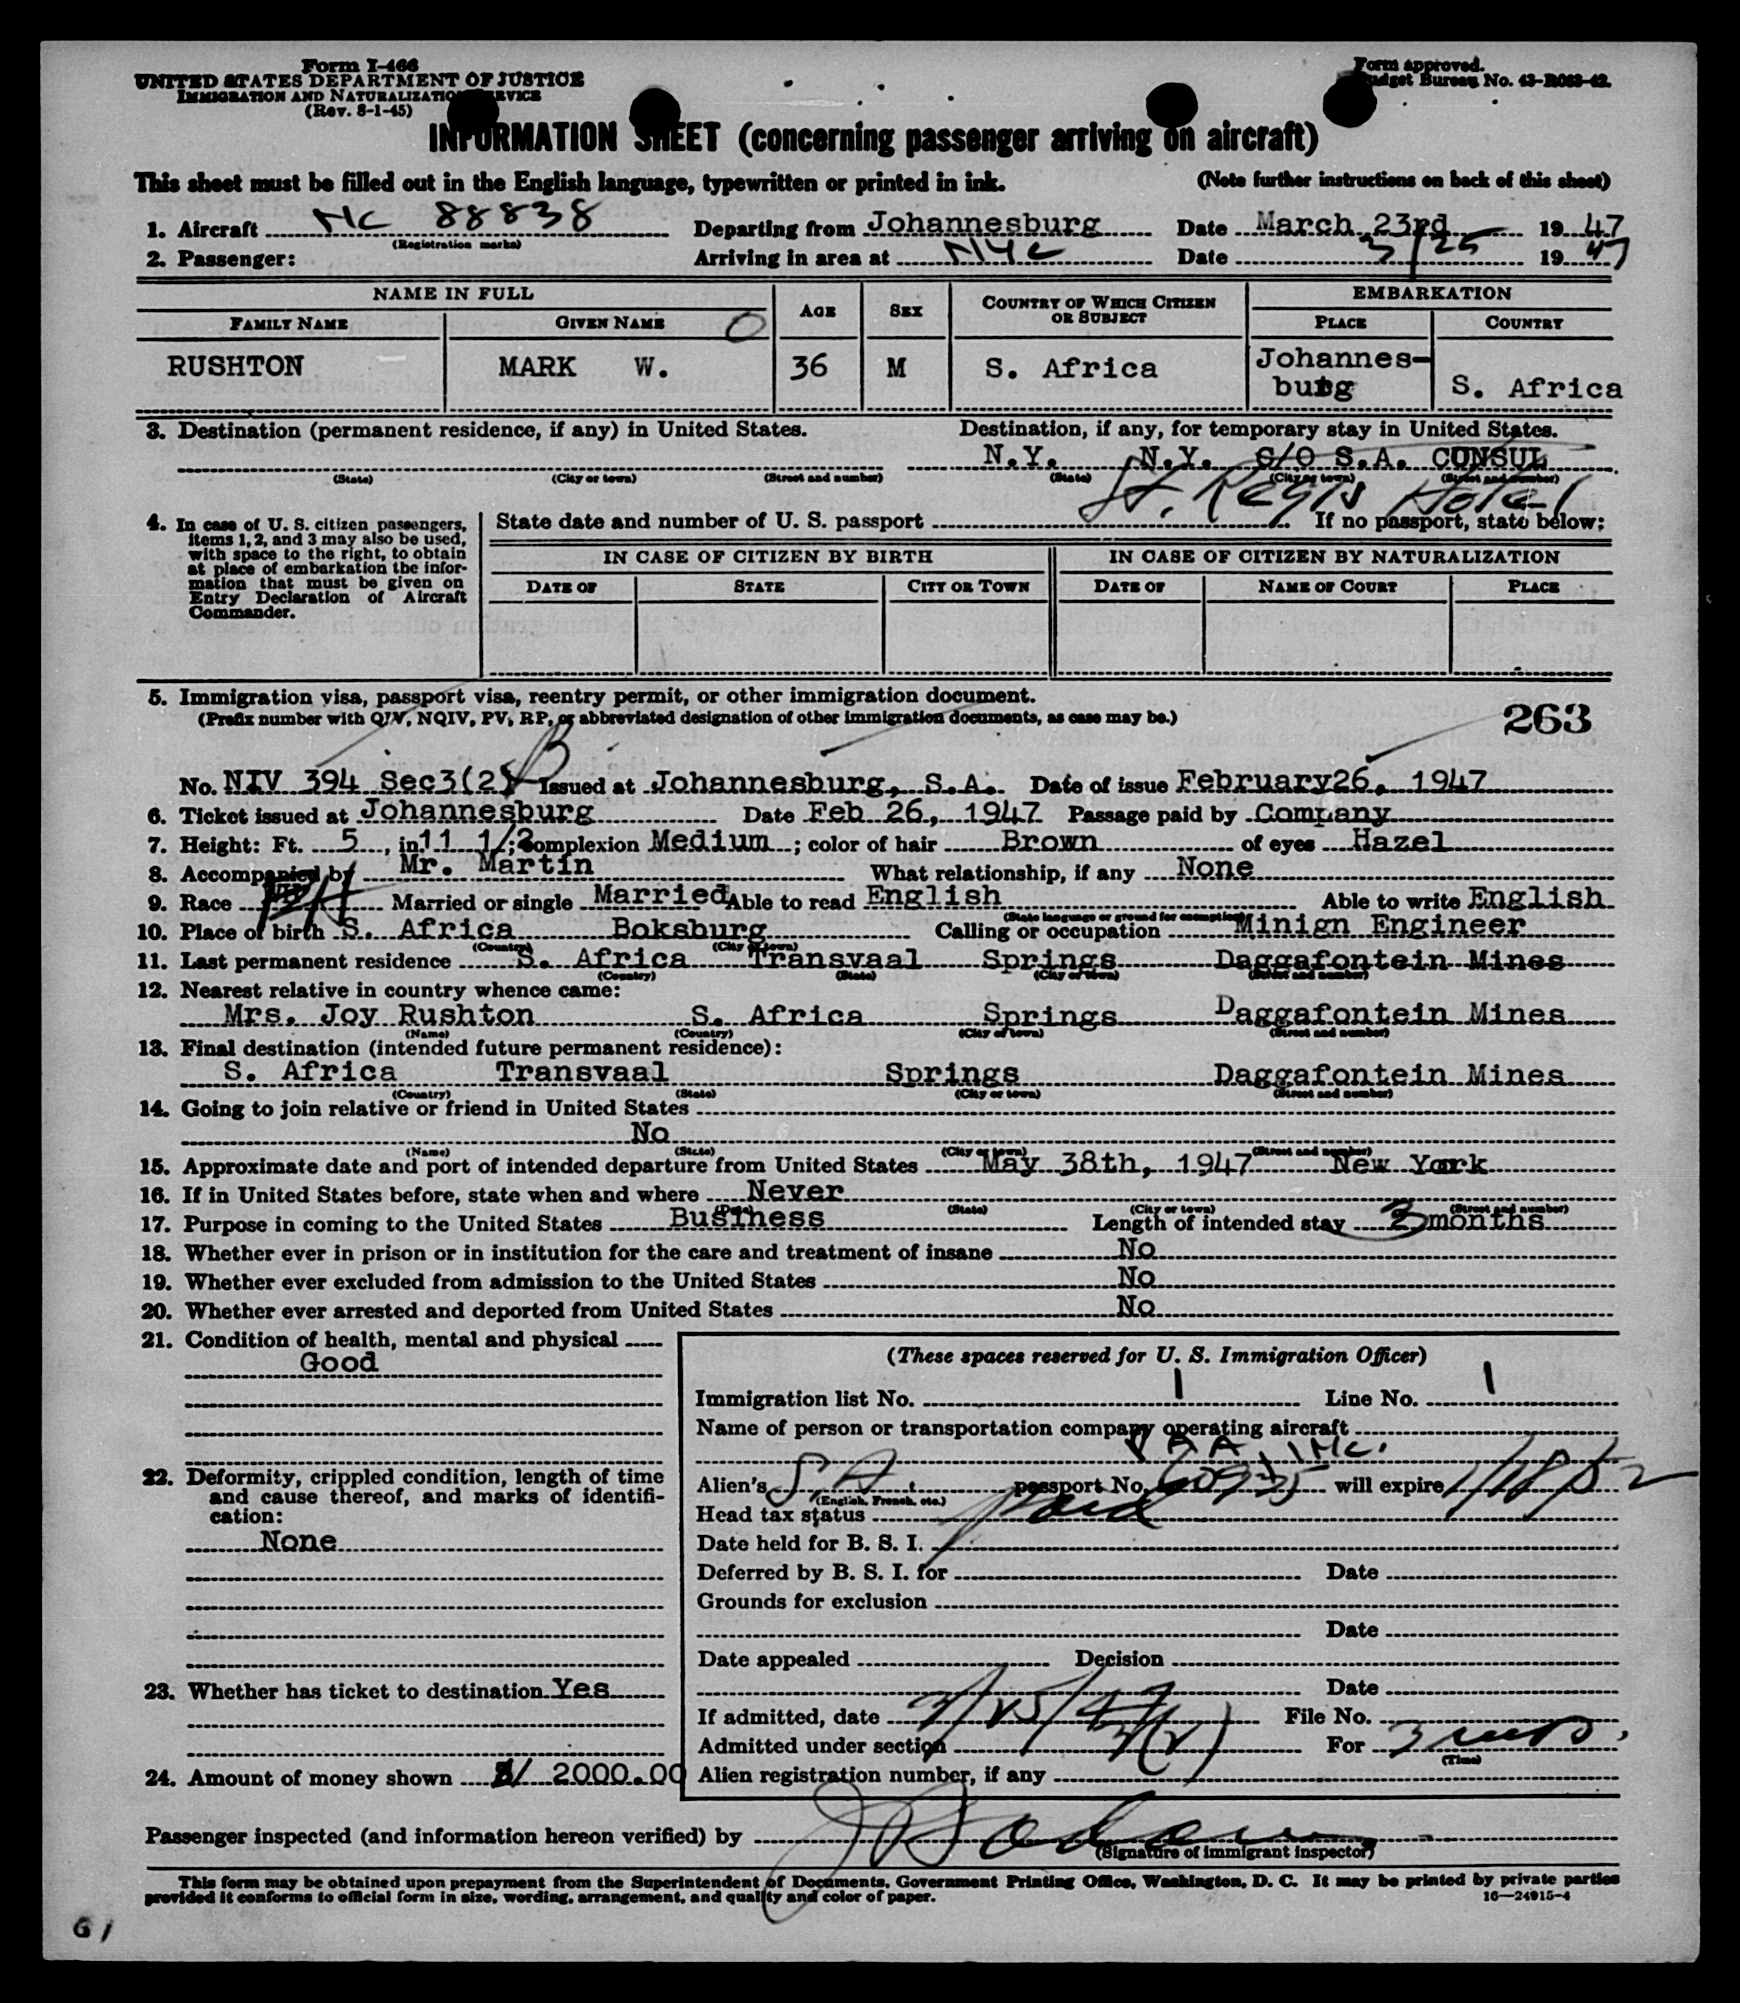 Form I-466
UNITED STATES DEPARTMENT OF JUSTICE
IMMIGRATION AND NATURALIZATION SERVICE
(Rev. 8-1-45)
Form approved.
Budget Bureau No. 43-R063-42.
INFORMATION SHEET (concerning passenger arriving on aircraft)
This sheet must be filled out in the English language, typewritten or printed in ink. (Note further instructions on back of this sheet)
1. Aircraft NC 88838 Departing from Johannesburg Date March 23rd 1947
(Registration marks)
2. Passenger: Arriving in area at NYC Date 3/25 1947
NAME IN FULL AGE SEX COUNTRY OF WHICH CITIZEN OR SUBJECT EMBARKATION
FAMILY NAME GIVEN NAME PLACE COUNTRY
RUSHTON MARK W. 36 M S. Africa Johannes-
burg S. Africa
3. Destination (permanent residence, if any) in United States. Destination, if any, for temporary stay in United States.
N.Y. N.Y. C/O S.A. CONSUL
(State) (City or town) (Street and number) (State) (City or town) (Street and number)
St. Regis Hotel
4. In case of U. S. citizen passengers, items 1, 2, and 3 may also be used, with space to the right, to obtain at place of embarkation the information that must be given on Entry Declaration of Aircraft Commander.
State date and number of U. S. passport If no passport, state below:
IN CASE OF CITIZEN BY BIRTH IN CASE OF CITIZEN BY NATURALIZATION
DATE OF STATE CITY OR TOWN DATE OF NAME OF COURT PLACE
5. Immigration visa, passport visa, reentry permit, or other immigration document.
(Prefix number with QIV, NQIV, PV, RP, or abbreviated designation of other immigration documents, as case may be.)
263
No. NIV 394 Sec3(2) B Issued at Johannesburg, S.A. Date of issue February26, 1947
6. Ticket issued at Johannesburg Date Feb 26, 1947 Passage paid by Company
7. Height: Ft. 5, in. 11 1/2; complexion Medium; color of hair Brown of eyes Hazel
8. Accompanied by Mr. Martin What relationship, if any None
9. Race Married or single Married Able to read English Able to write English
(State language or ground for exemption)
10. Place of birth S. Africa Boksburg Calling or occupation Minign Engineer
(Country) (City or town)
11. Last permanent residence S. Africa Transvaal Springs Daggafontein Mines
(Country) (State) (City or town) (Street and number)
12. Nearest relative in country whence came:
Mrs. Joy Rushton S. Africa Springs Daggafontein Mines
(Name) (Country) (City or town) (Street and number)
13. Final destination (intended future permanent residence):
S. Africa Transvaal Springs Daggafontein Mines
(Country) (State) (City or town) (Street and number)
14. Going to join relative or friend in United States
No
(Name) (State) (City or town) (Street and number)
15. Approximate date and port of intended departure from United States May 38th, 1947 New York
16. If in United States before, state when and where Never
(Date) (State) (City or town) (Street and number)
17. Purpose in coming to the United States Business Length of intended stay 3 months
18. Whether ever in prison or in institution for the care and treatment of insane No
19. Whether ever excluded from admission to the United States No
20. Whether ever arrested and deported from United States No
21. Condition of health, mental and physical
Good
22. Deformity, crippled condition, length of time and cause thereof, and marks of identification:
None
23. Whether has ticket to destination Yes
24. Amount of money shown $ 2000.00
(These spaces reserved for U. S. Immigration Officer)
Immigration list No. 1 Line No. 1
Name of person or transportation company operating aircraft
P A A INC.
Alien's S. A. passport No. will expire 1/18/52
(English, French, etc.)
Head tax status paid
Date held for B. S. I.
Deferred by B. S. I. for Date
Grounds for exclusion
Date
Date appealed Decision
Date
If admitted, date 3/25/47 File No.
Admitted under section 3(2) For 3 mos.
(Time)
Alien registration number, if any
Passenger inspected (and information hereon verified) by
(Signature of immigrant inspector)
This form may be obtained upon prepayment from the Superintendent of Documents, Government Printing Office, Washington, D. C. It may be printed by private parties
provided it conforms to official form in size, wording, arrangement, and quality and color of paper. 16—24915-4
G 1